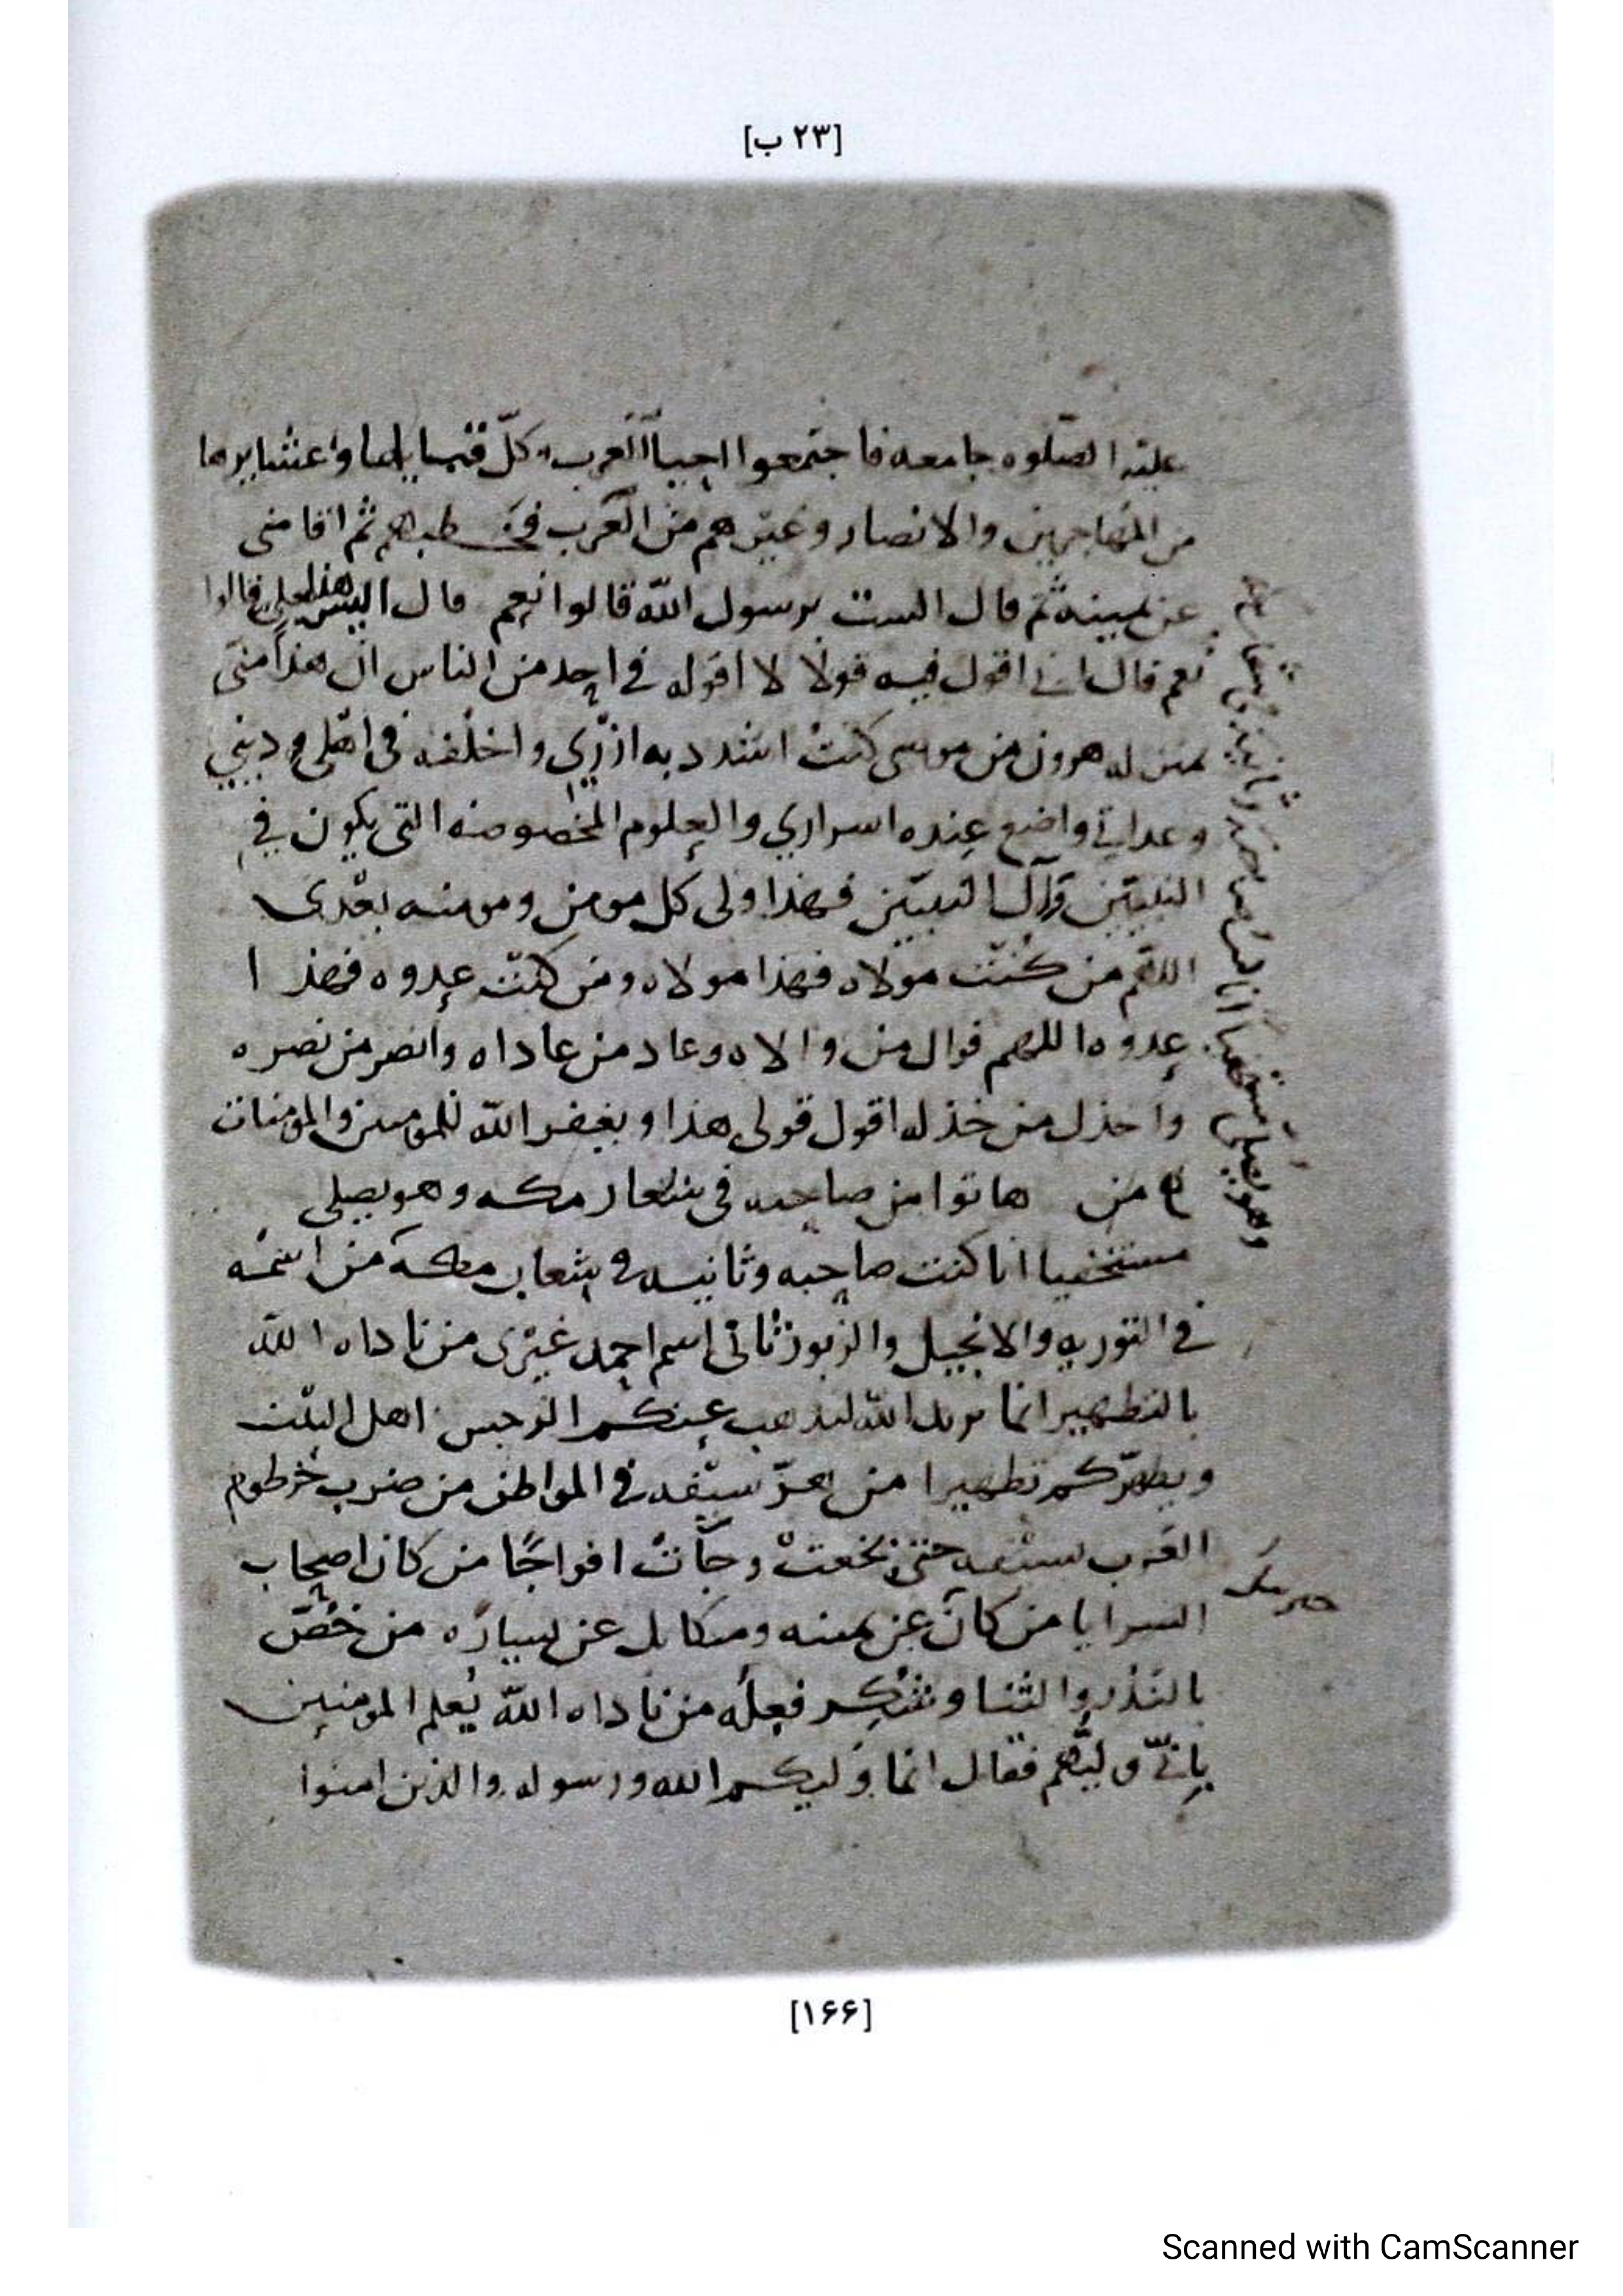 [٢٣ ب]
عليه الصلوه جامعه فاجتمعوا احيآ العرب وكلّ قبايلها وعشايرها
من المهاجرين والانصار وغيرهم من العرب فخطبهم ثم اقامني
عن يمينه ثم قال الست برسول الله قالوا نعم قال اليس هذا علي قالوا
نعم قال اني اقول فيه قولا لا اقوله في احد من الناس ان هذا منّي
بمنزله هرون من موسى كنت اشدد به ازري واخلفه في اهلي وديني
وعداتي واضع عنده اسراري والعلوم المخصوصه التي يكون في
النبيّين وآل النبيّين فهذا ولى كل مومن ومومنه بعدى
اللهم من كنت مولاه فهذا مولاه ومن كنت عدوه فهذا
عدوه اللهم فوال من والاه وعاد من عاداه وانصر من نصره
واخذل من خذله اقول قولى هذا ويغفر الله للمومنين والمؤمنات
من هاتوا من صاحبه في شعار مكه وهو يصلي
مستخفيا انا كنت صاحبه وثانيه في شعاب مكه من اسمه
في التوريه والانجيل والزبور ثانى اسم احمد غيرى من ناداه الله
بالتطهير انما يريد الله ليذهب عنكم الرجس اهل البيت
ويطهّركم تطهيرا من سيفه في المواطن من ضرب خرطوم
العرب بسيفه حتى نخعت وجآت افواجًا من كان اصحاب
السرايا من كان عن يمينه وميكايل عن يساره من خصّ
جبريل
بالنذر والثنا وشكر فعله من ناداه الله يُعلم المومنين
بانّي وليّهم فقال انما وليكم الله ورسوله والذين امنوا
وهو يصلي مستخفيا انا كنت صاحبه وثانيه
[١۶۶]
Scanned with CamScanner